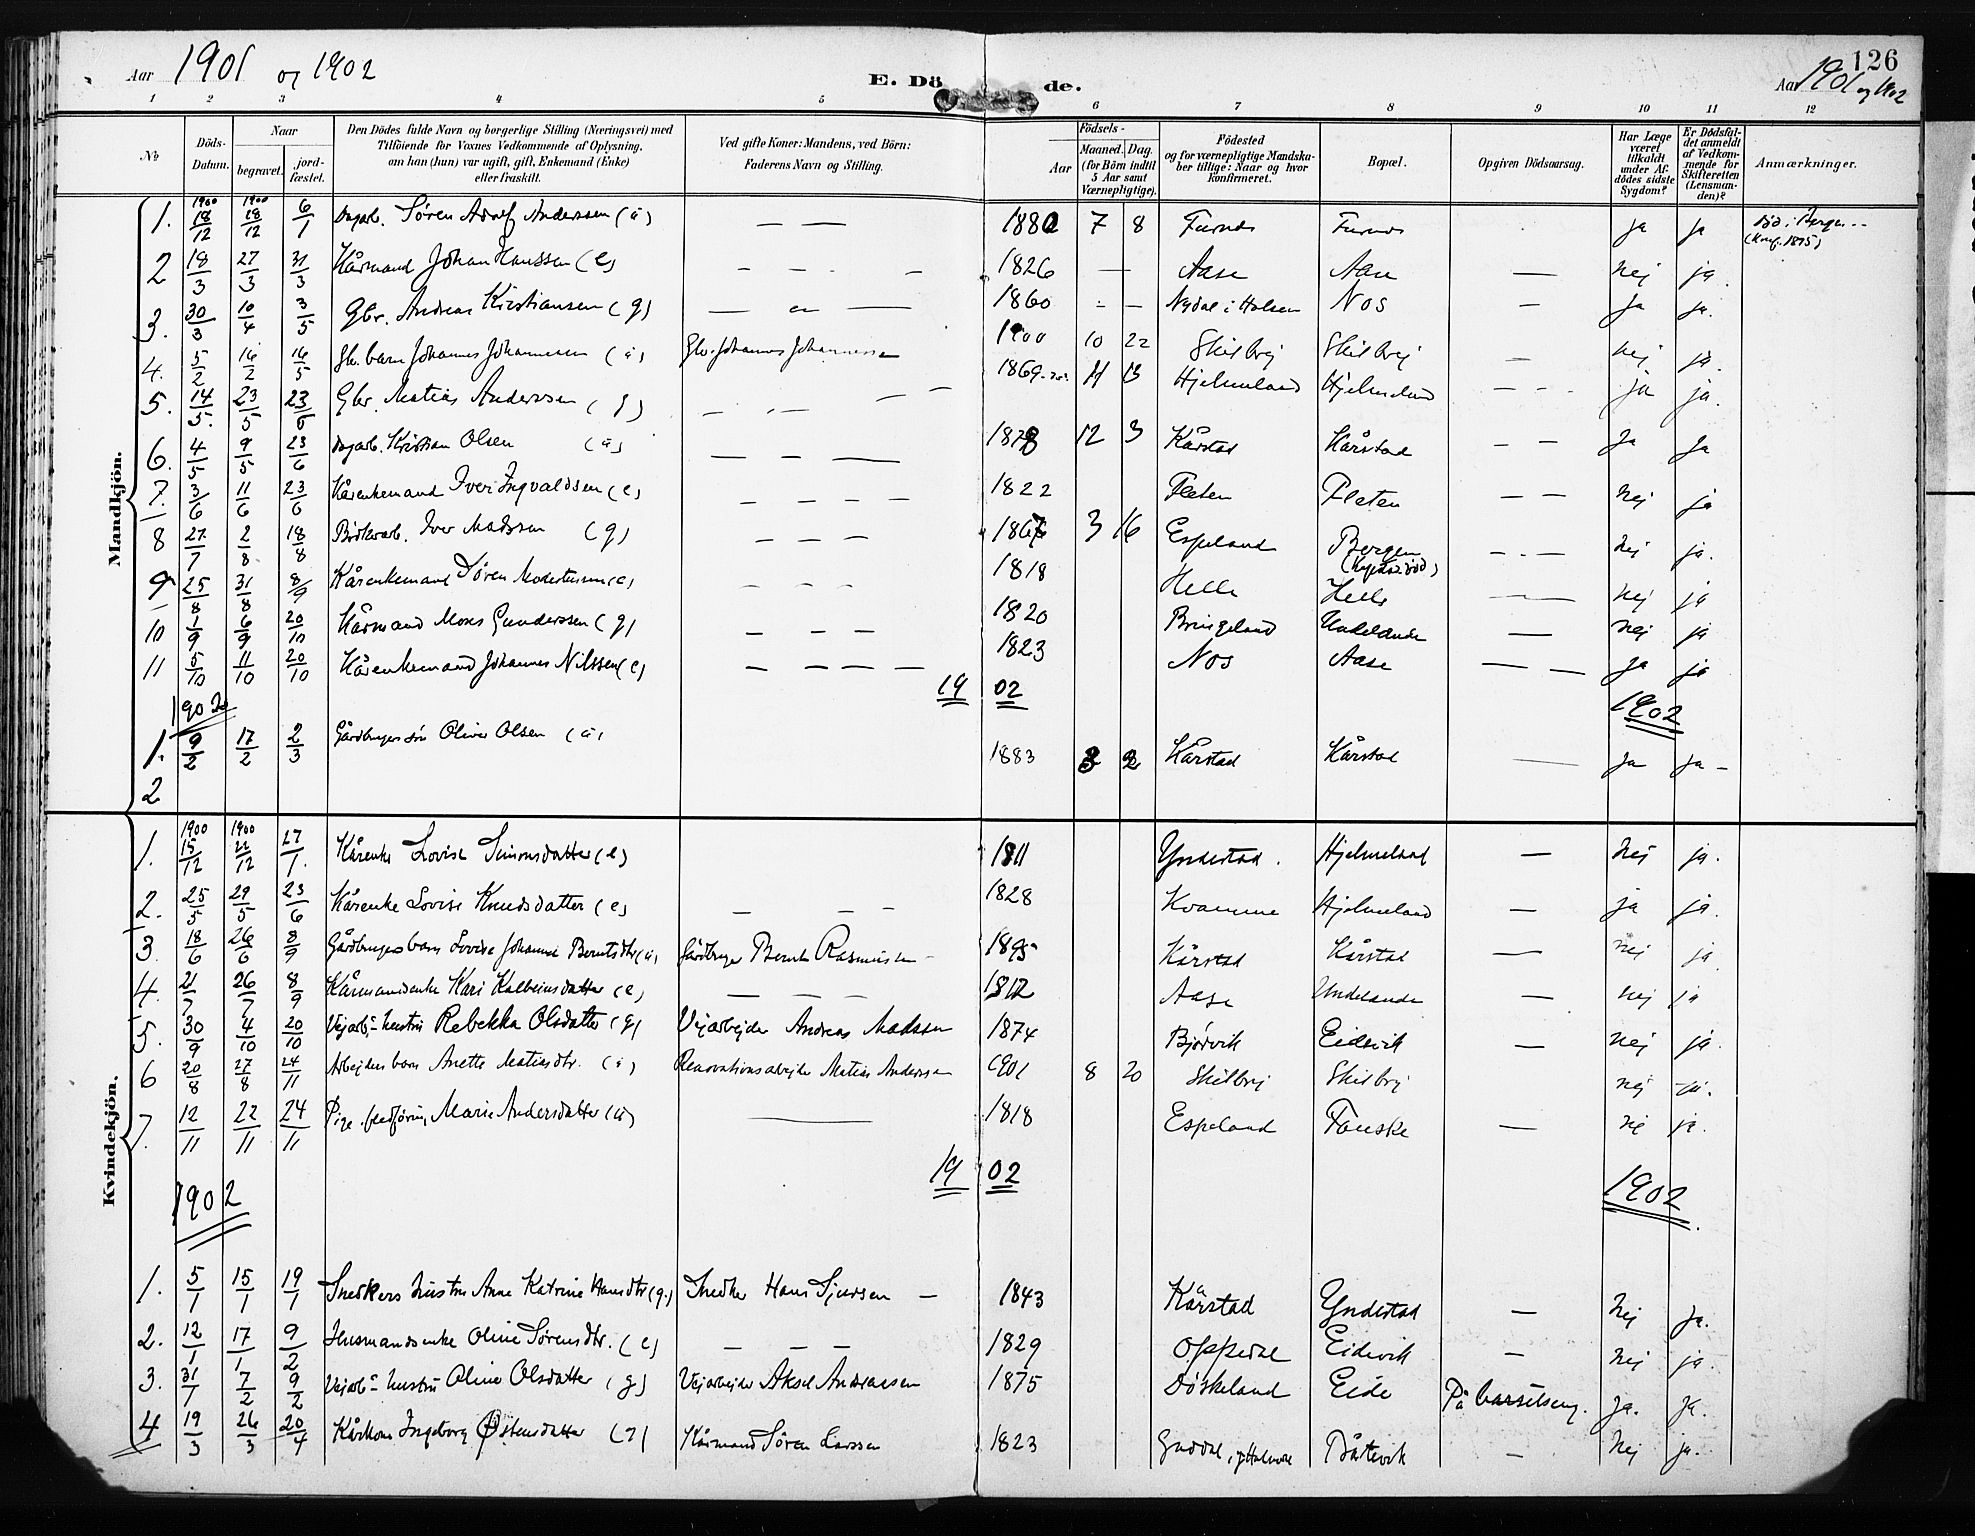 Aar 1901 og 1902
E. Dö de.
126
Aar 1901 og 1902
1 2 3 4 5 6 7 8 9 10 11 12
No
Döds-Datum.
Naar
begravet.
jord-fæstet.
Den Dödes fulde Navn og borgerlige Stilling (Næringsvei) med
Tilföiende for Voxnes Vedkommende af Oplysning,
om han (hun) var ugift, gift, Enkemand (Enke)
eller fraskilt.
Ved gifte Koner: Mandens, ved Börn:
Faderens Navn og Stilling.
Födsels-
Aar
Maaned. Dag.
(for Börn indtil
5 Aar samt
Værnepligtige).
Födested
og for værnepligtige Mandska-
ber tillige: Naar og hvor
konfirmeret.
Bopæl.
Opgiven Dödsaarsag.
Har Læge
været
tilkaldt
under Af-
dödes sidste
Sygdom?
Er Dödsfal-
det anmeldt
af Vedkom-
mende for
Skifteretten
(Lensman-
den)?
Anmærkninger.
Mandkjön.
1. 1900 18/12 1900 18/12 6/1 Dagarb. Søren Adolf Anderssen (u) — — 1880 7 8 Furnes Furnes ja ja Död i Bergen (Konf. 1895)
2 18/3 27/3 31/3 Kårmand Johan Hanssen (e) — — — 1826 — Aase Aase — nej ja.
3. 30/3 10/4 3/5 Gbr. Andreas Kristiansen (g) — — — 1860 - — Nydal i Holsen Nos — ja ja.
4. 5/2 16/2 16/5 Gbr. barn Johannes Johannessen (u) Gbr. Johannes Johannessen 1900 10 22 Skilbrej Skilbrej — nej ja.
5. 14/5 23/5 23/6 Gbr. Matias Anderssen (g) — — — 1869 11 13 Hjelmeland Hjelmeland — ja ja.
6. 4/5 9/5 23/6 Dagarb. Kristian Olsen (u) — — — 1878 12 3 Kårstad Kårstad — — ja ja
7. 3/6 11/6 23/6 Kårenkemand Iver Ingvaldsen (e) — — — — 1822 Fleten Fleten — — nej ja
8 27/7 2/8 18/8 Iver Madssen (g) — — — 1867 3 16 Espeland Bergen — — nej ja.
9 25/8 31/8 8/9 Kårenkemand Søren (e) - - - 1818 Helle Helle — nej ja
10 1/9 6/9 20/10 Kårmand Moses Gunderssen (g) — — — 1820 Bringeland Undelande — nej ja
11 5/10 11/10 20/10 Kårenkemand Johannes Nilssen (e) — — — — 1823 Nos Aase — — ja ja
1902 19 02 1902
1. 9/2 17/2 2/3 Gårdbrugers søn Oliver Olsen (u) 1883 3 2 Kårstad Kårstad — ja ja -
2
Kvindekjön.
1. 1900 15/12 1900 22/12 27/1. Kårenke Lovise Simonsdatter (e) 1811 Yndestad. Hjelmeland — nej ja.
2. 25/5 29/5 23/6 Kårenke Lovise Knudsdatter (e) — — — 1828 Kvamme Hjelmeland — ja ja.
3. 18/6 26/6 8/9 Gårdbrugers barn Lovise Johanna Berntsdtr (u) Gårdbruger Bernt Rasmussen - 1895 Kårstad Kårstad — nej ja
4. 21/7 26/7 8/9 Kårmandsenke Kari Kolbeinsdatter (e) — — — 1812 Aase Undelande — nej ja
5. 30/9 4/10 20/10 Vejarb.- hustru Rebekka Olsdatter (g) Vejarbejder Andreas Madssen 1874 Bjørvik Eidevik — nej ja.
6 20/8 27/8 24/11 Arbejders barn Anette Matiasdtr. (u) Renovationsarbejder Matias Anderssen 1901 8 20 Skilbrej Skilbrej nej ja.
7. 12/11 22/11 24/11 Pige Marie Andersdatter (u) — 1818 Espeland Fauske — nej ja.
1902 19 02 1902
1. 5/1 15/1 19/1 Snedkers hustru Anne Katrine Hansdtr (g.) Snedker Hans Sjurssen — 1843 Kårstad Yndestad — nej ja.
2. 12/1 17/1 9/2 Husmandsenke Oline Sørensdtr. (e) — — — 1829 Oppedal Eidevik — nej ja.
3. 31/1 7/2 9/2 Vejarb.- hustru Oline Olsdatter (g) Vejarbejder Aksel Andreassen 1875 Døskeland Eide På barselseng. ja. ja.
4 19/3 26/3 20/4 Kårkone Ingeborg Østensdatter (g) Kårmand Søren Larssen 1823 Gaddal, Båtevik — nej ja.